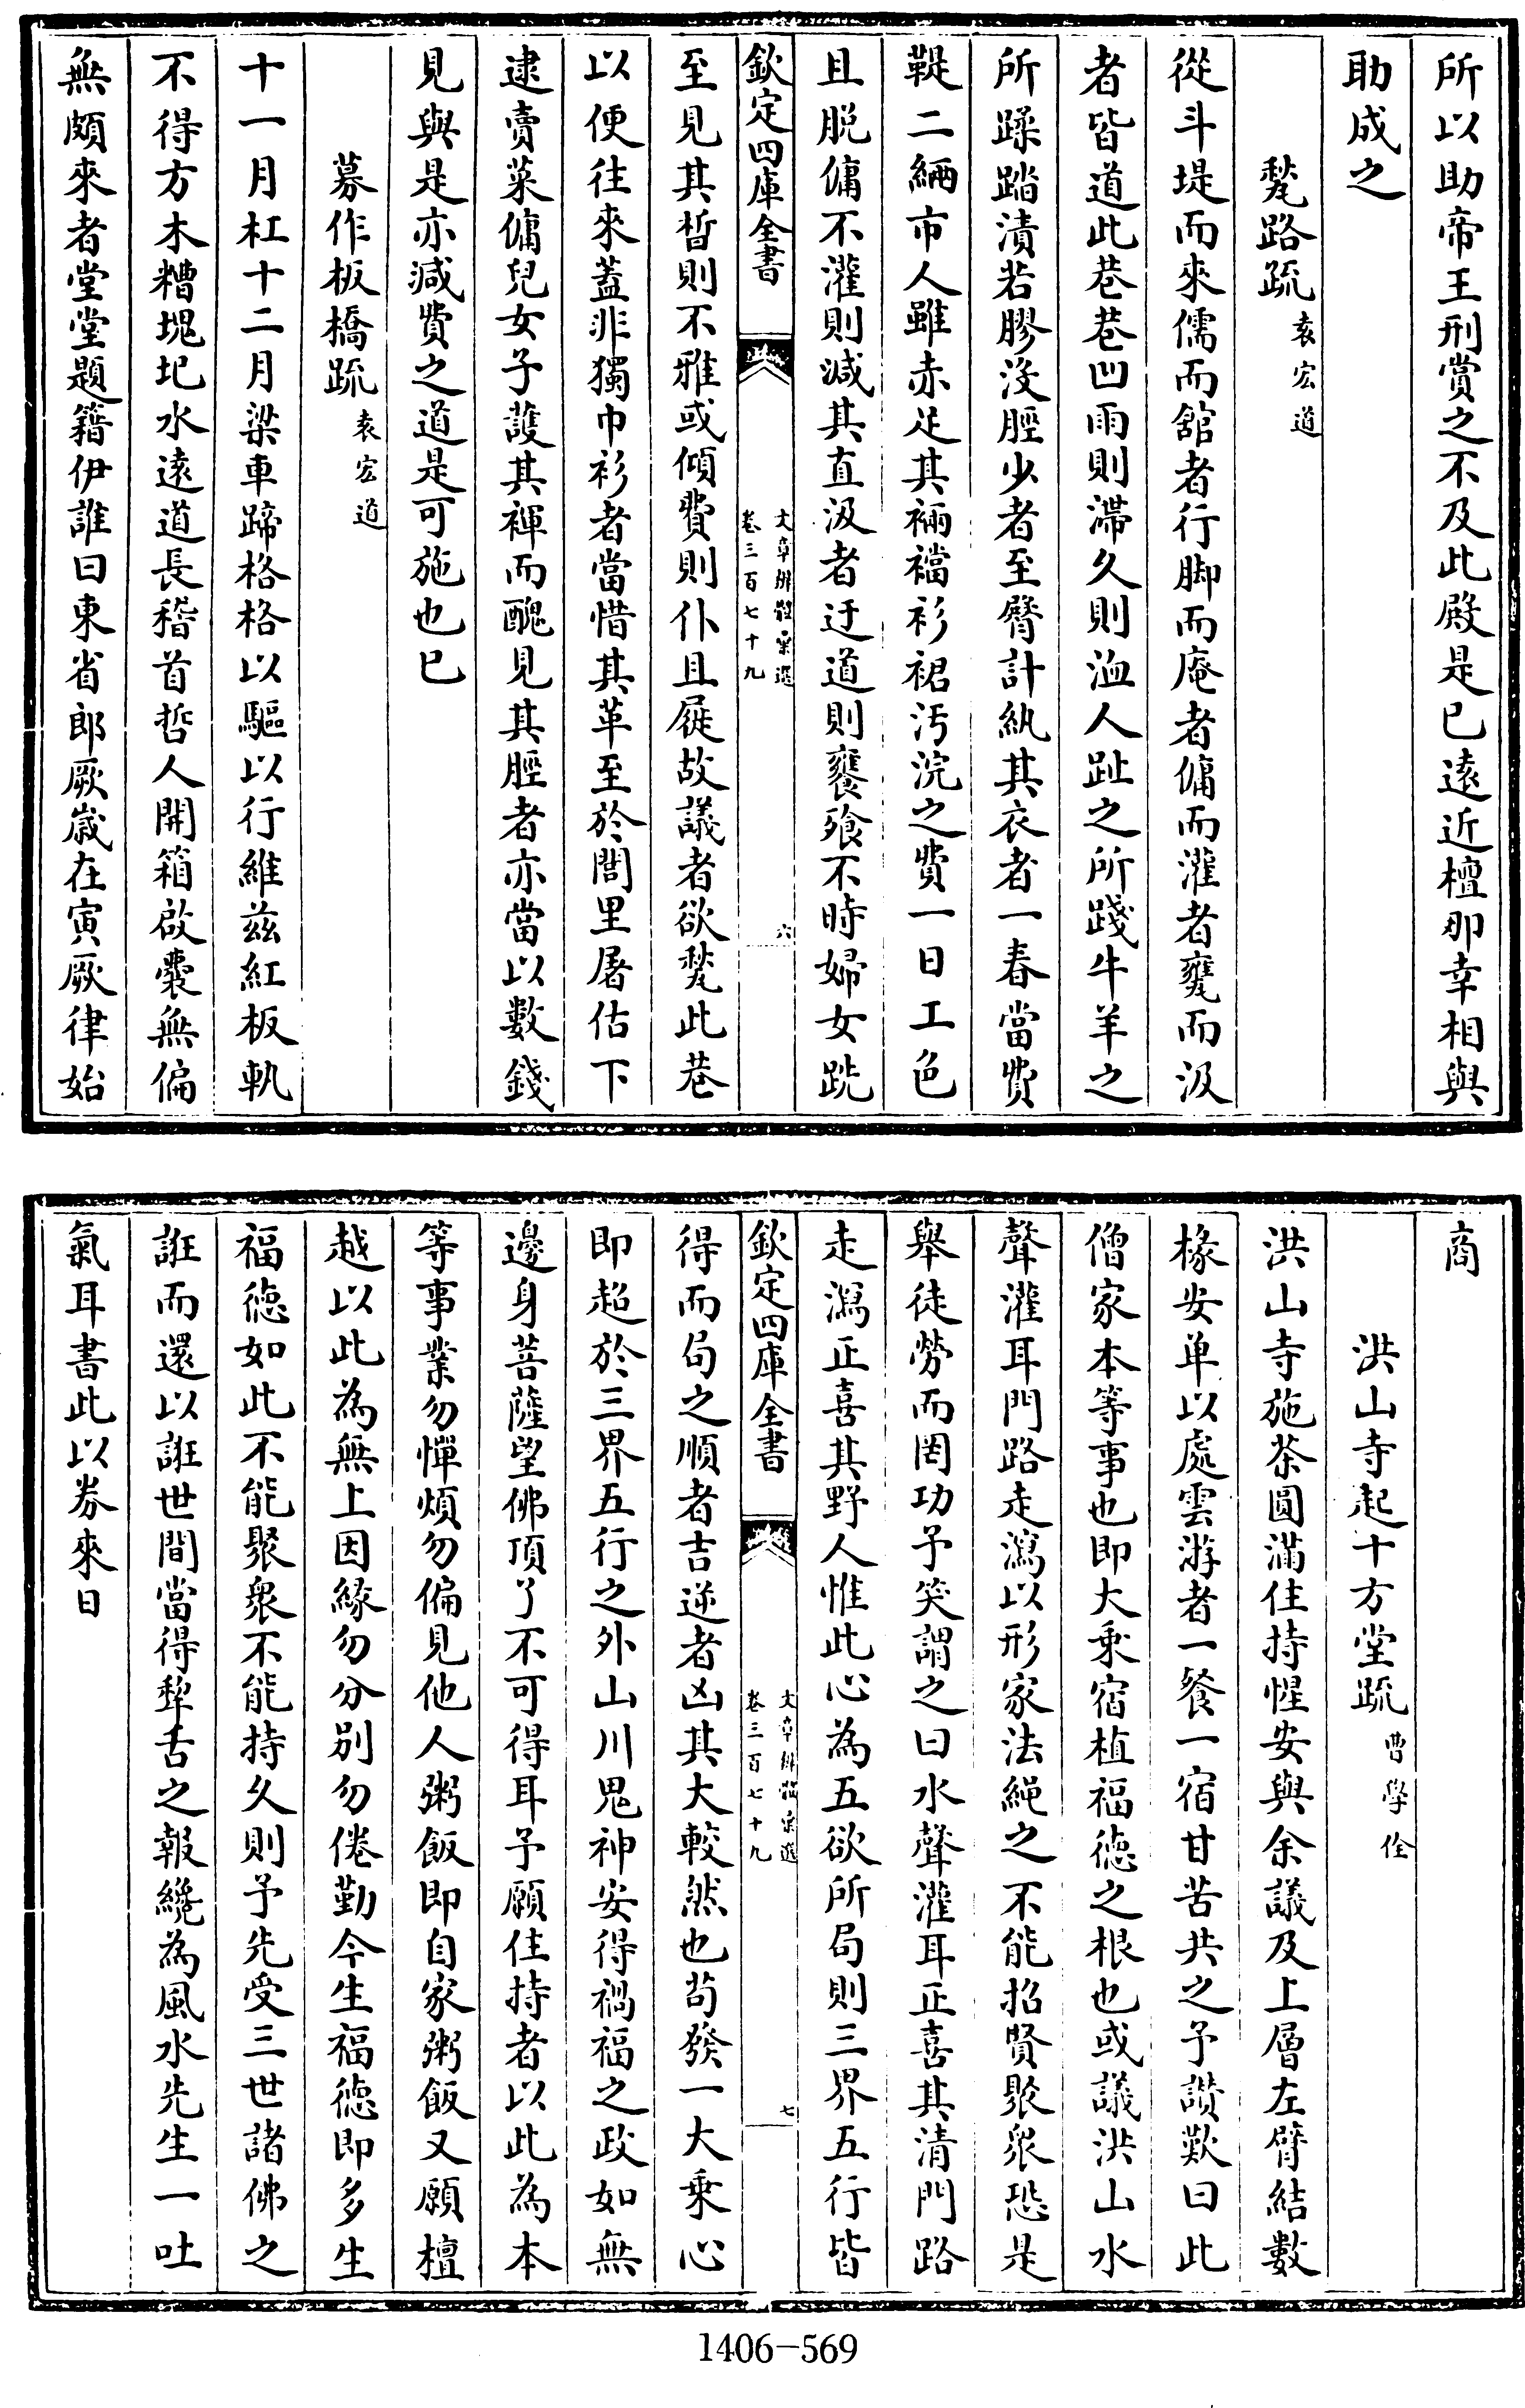 所以助帝王刑賞之不及此殿是已遠近檀那幸相與
助成之
甃路疏袁宏道
從斗堤而來儒而舘者行脚而庵者傭而灌者甕而汲
者皆道此巷巷凹雨則滯久則洫人趾之所踐牛羊之
所蹂踏漬若膠没脛少者至臀計紈其衣者一春當費
鞮二緉市人雖赤足其裲襠衫裙汚浣之費一日工色
且脱傭不灌則減其直汲者迂道則饔飱不時婦女跣
欽定四庫全書
文章辨體彚選
卷三百七十九
六
至見其晳則不雅或傾費則仆且屣故議者欲甃此巷
以便往來蓋非獨巾衫者當惜其革至於閭里屠估下
逮賣菜傭兒女子護其褌而醜見其脛者亦當以數錢
見與是亦減費之道是可施也已
募作板橋疏袁宏道
十一月杠十二月梁車蹄格格以驅以行維兹紅板軌
不得方木糟塊圯水遠道長稽首哲人開箱啟囊無偏
無頗來者堂堂題籍伊誰曰東省郎厥嵗在寅厥律始
商
洪山寺起十方堂疏曹學佺
洪山寺施茶圓滿住持惺安與余議及上層左臂結數
椽安单以處雲游者一餐一宿甘苦共之予讃歎曰此
僧家本等事也即大乘宿植福徳之根也或議洪山水
聲灌耳門路走瀉以形家法繩之不能招賢聚衆恐是
舉徒勞而罔功予笑謂之曰水聲灌耳正喜其清門路
走瀉正喜其野人惟此心為五欲所局則三界五行皆
欽定四庫全書
文章辨體彚選
卷三百七十九
七
得而局之順者吉逆者凶其大較然也茍發一大乘心
即超於三界五行之外山川鬼神安得禍福之政如無
邊身菩薩望佛頂了不可得耳予願住持者以此為本
等事業勿憚煩勿偏見他人粥飯即自家粥飯又願檀
越以此為無上因緣勿分别勿倦勤今生福徳即多生
福徳如此不能聚衆不能持久則予先受三世諸佛之
誑而還以誑世間當得犂舌之報纔為風水先生一吐
氣耳書此以券來日
1406-569